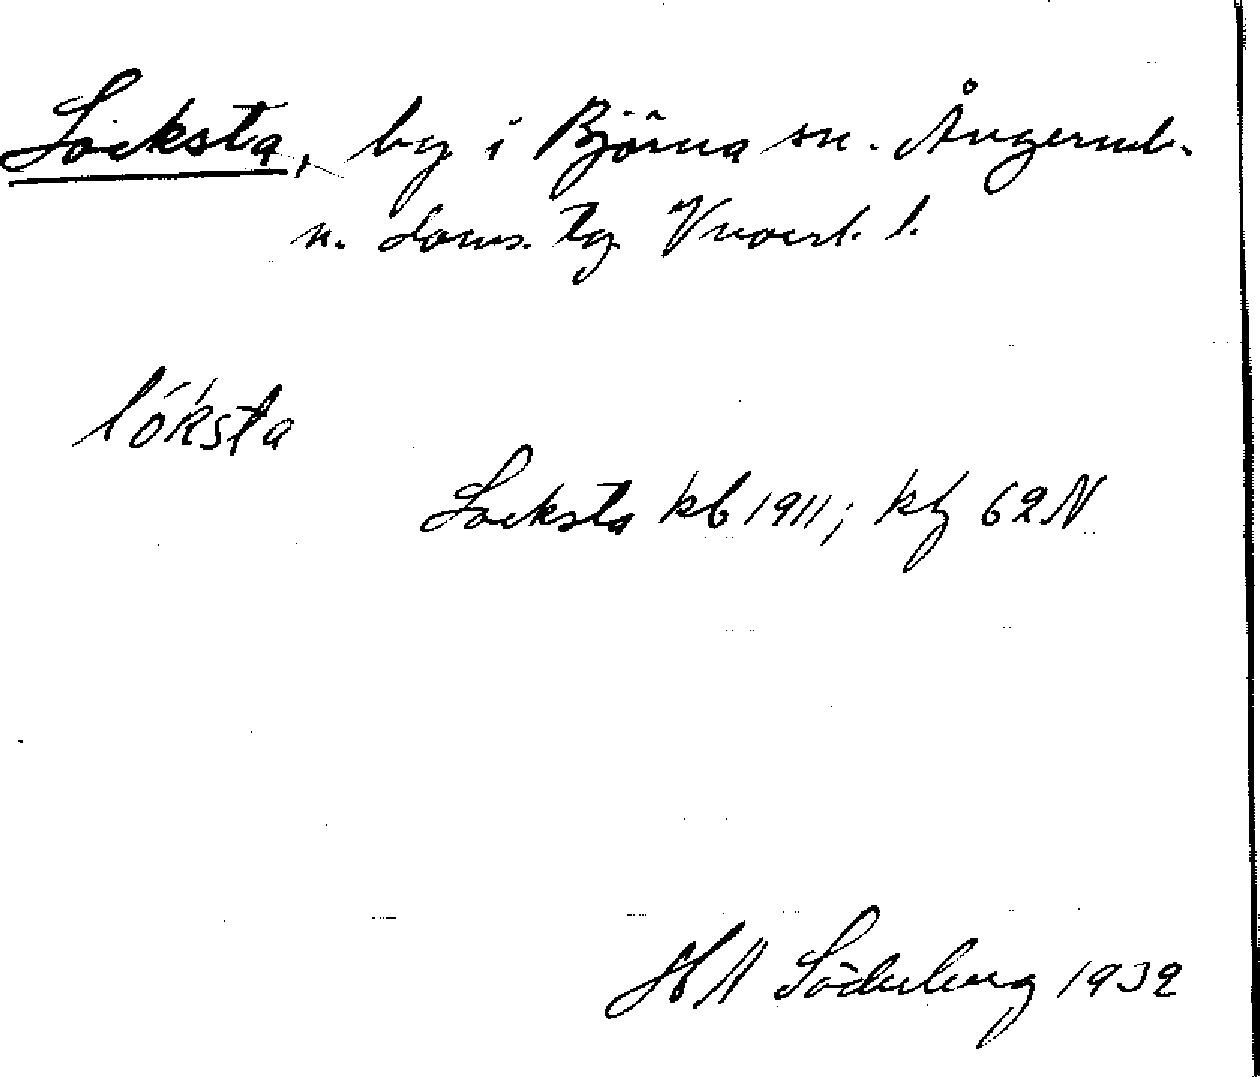 Locksta, by i Björna sn. Ångerml.
n. doms. tg Vnorrl. l.
lóksta
Locksta kb 1911; kg 62N
HN Söderberg 1932